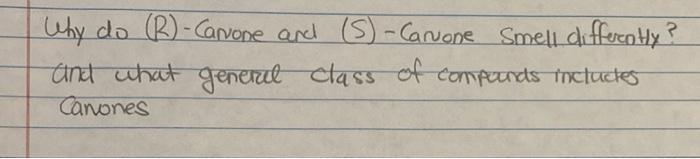 Why do (R)-Carvone and (S)-Carvone smell differently?
and what general class of compounds includes
Carvones